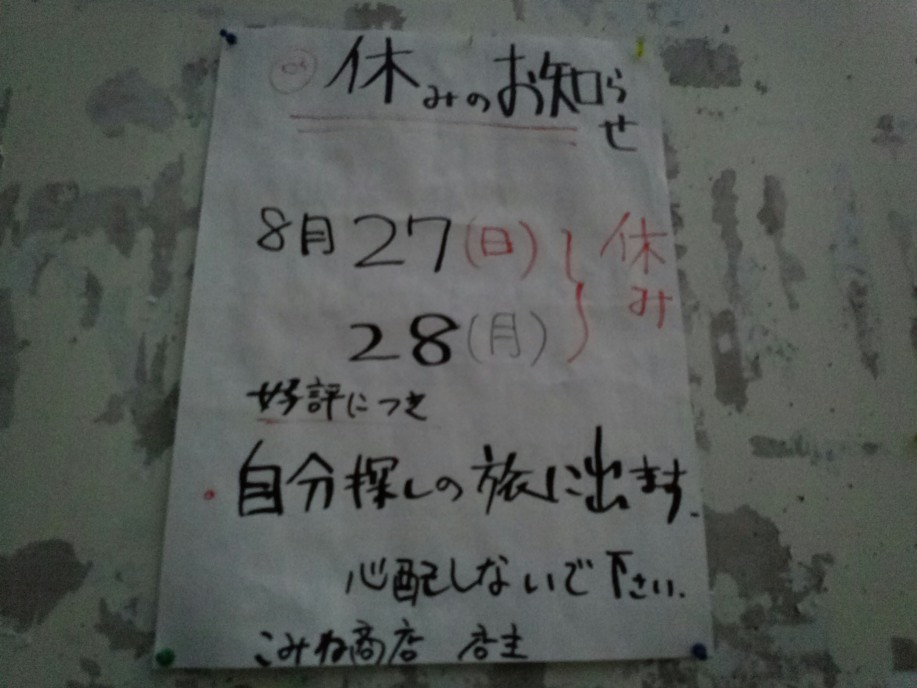 休みのお知らせ
8月27(日)
28(月)
休み
好評につき
自分探しの旅に出ます.
心配しないで下さい.
こみね商店 店主